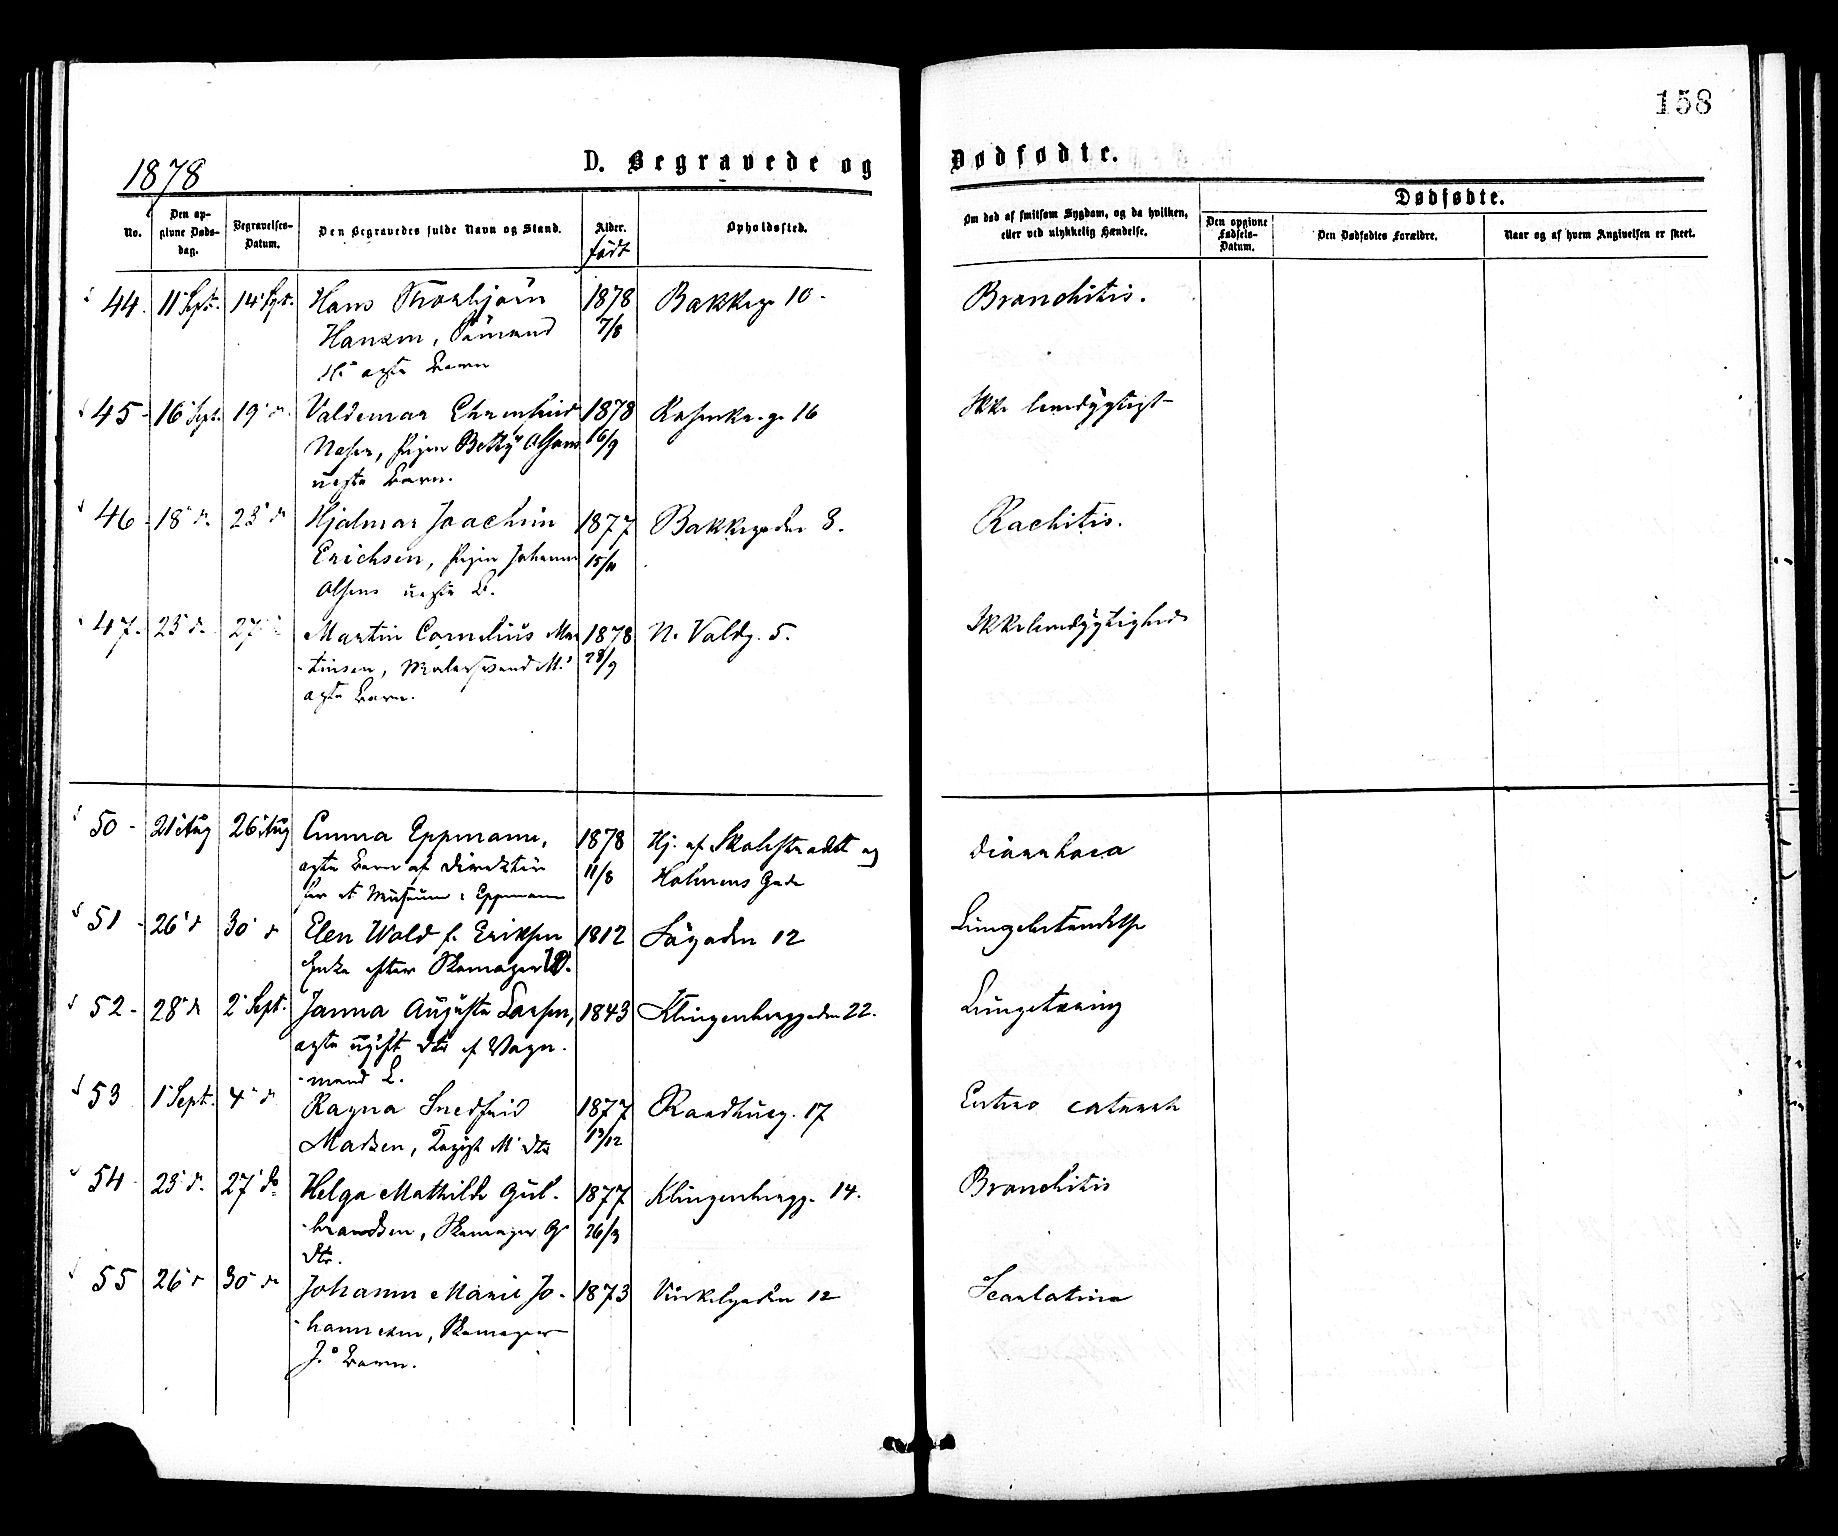 158
1878
D. Begravede og
Dødfødte.
No.
Den op-
givne Døds-
dag.
Begravelses-
Datum.
Den Begravedes fulde Navn og Stand.
Alder.
født
Opholdssted.
Om død af smitsom Sygdom, og da hvilken,
eller ved ulykkelig Hændelse.
Dødfødte.
Den opgivne
Fødsels-
Datum.
Den Dødfødtes Forældre.
Naar og af hvem Angivelsen er skeet.
44. 11 Sept. 14 Sept. Hans Thorbjørn 1878 Bakkeg. 10. Bronchitis.
Hansen, Sømand 7/8
H.s ægte Barn
45 16 Sept. 19 d. Valdemar 1878 16 Ikke levedygtigt
Pigen Betty Olsens 16/9
uegte Barn.
46 18 d. 23 d. Hjalmar Joachim 1877 Bakkegaden 8. Rachitis.
Erichsen, Pigen Johanne 15/11
Olsens uegte B.
47. 23 d. 27 Martin Cornelius Mar 1878 N. Voldg. 5. Ikkelevedygtighed
tinsen, Malersvend M.s
ægte Barn.
50 21 Aug 26 Aug Emma Eppmann, 1878 Hj. af Skolestrædet og Diarrhoea
ægte Barn af Direktør 11/8 Holmens Gade
for et Museum: Eppmann
51 26 d 30 d Elen Wold f. Eriksen 1812 Søgaden 12 Lungebetændelse
Enke efter Skomager W.
52 28 d 2 Sept. Janna Augusta Larsen, 1843 Klingenberggaden 22. Lungetæring
ægte ugift Dtr af Vogn-
mand L.
53 1 Sept. 4 d Ragna 1877 Raadhusg. 17 Entero catarrh
Madsen, M Dtr 13/12
54 23 d. 27 do Helga Mathilde Gul- 1877 Klingenbergg. 14. Bronchitis
brandsen, Skomager G 26/3
Dtr.
55 26 d 30 d Johanne Marie Jo- 1873 Vinkelgaden 12 Scarlatina
hannesen, Skomager
J.s Barn.